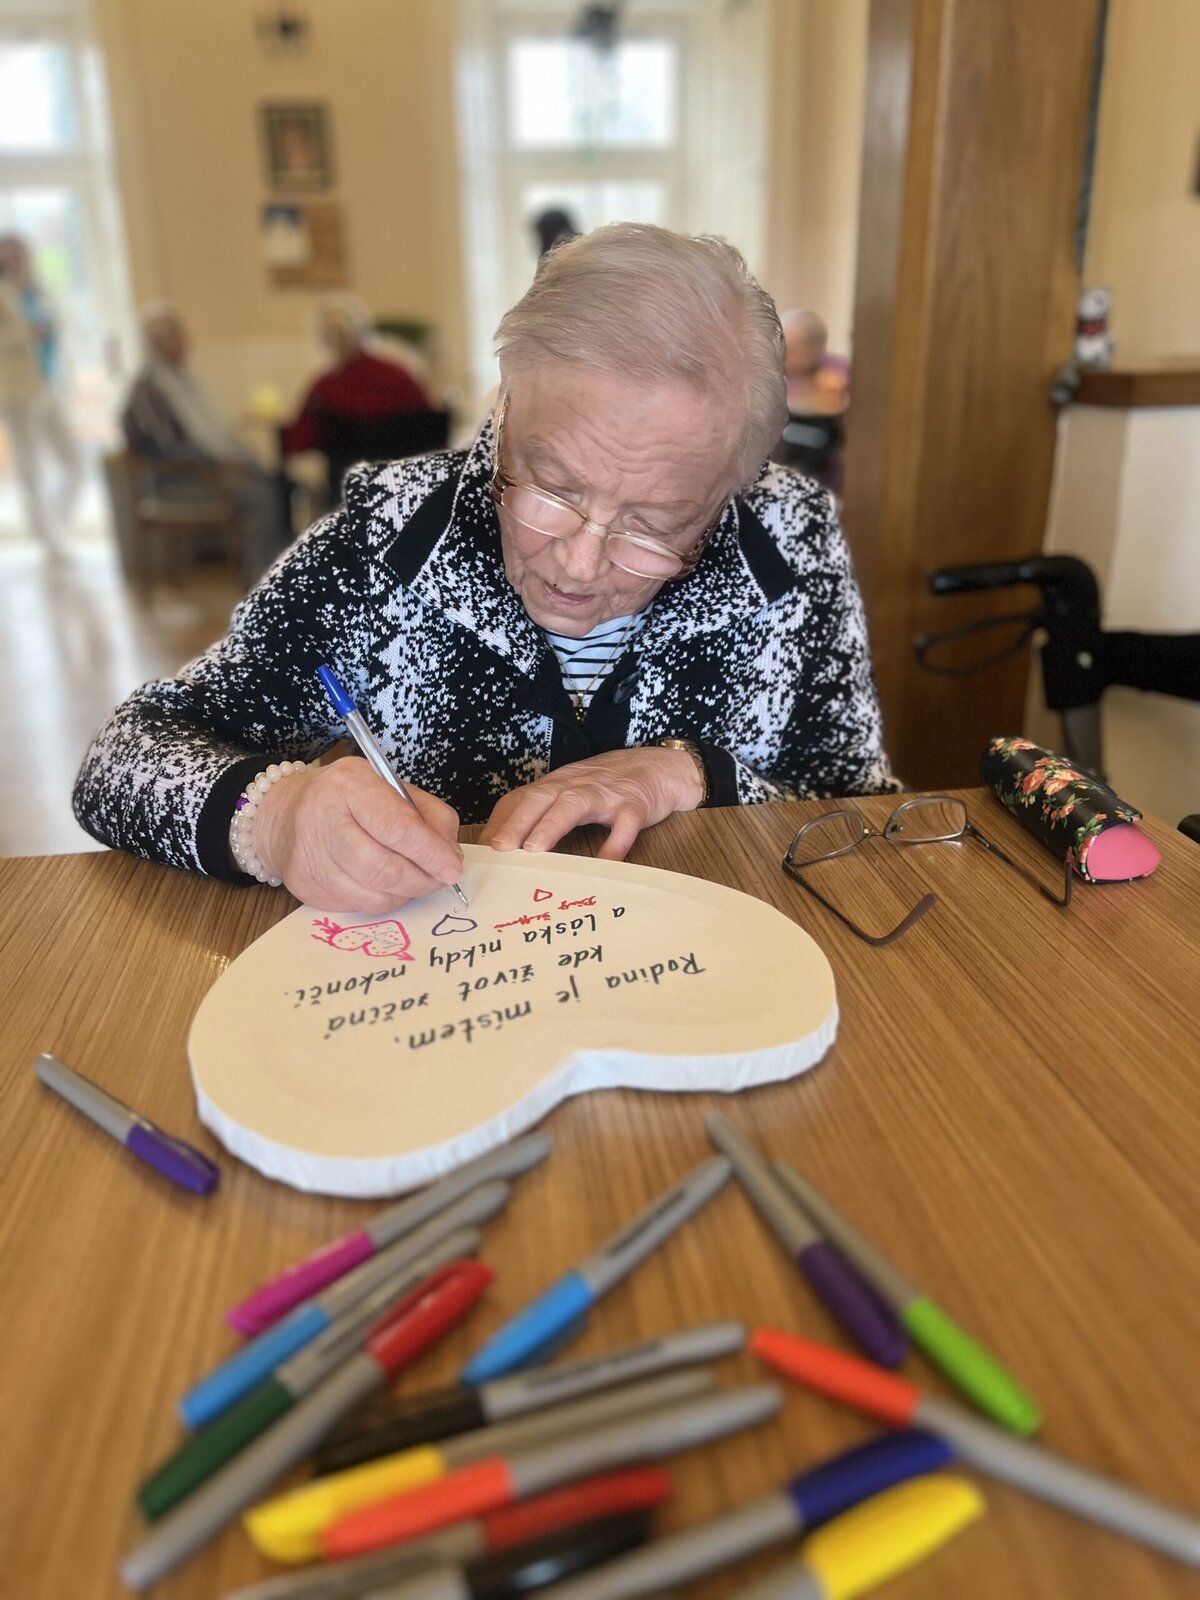 Rodina je místem,
kde život začíná
a láska nikdy nekončí.